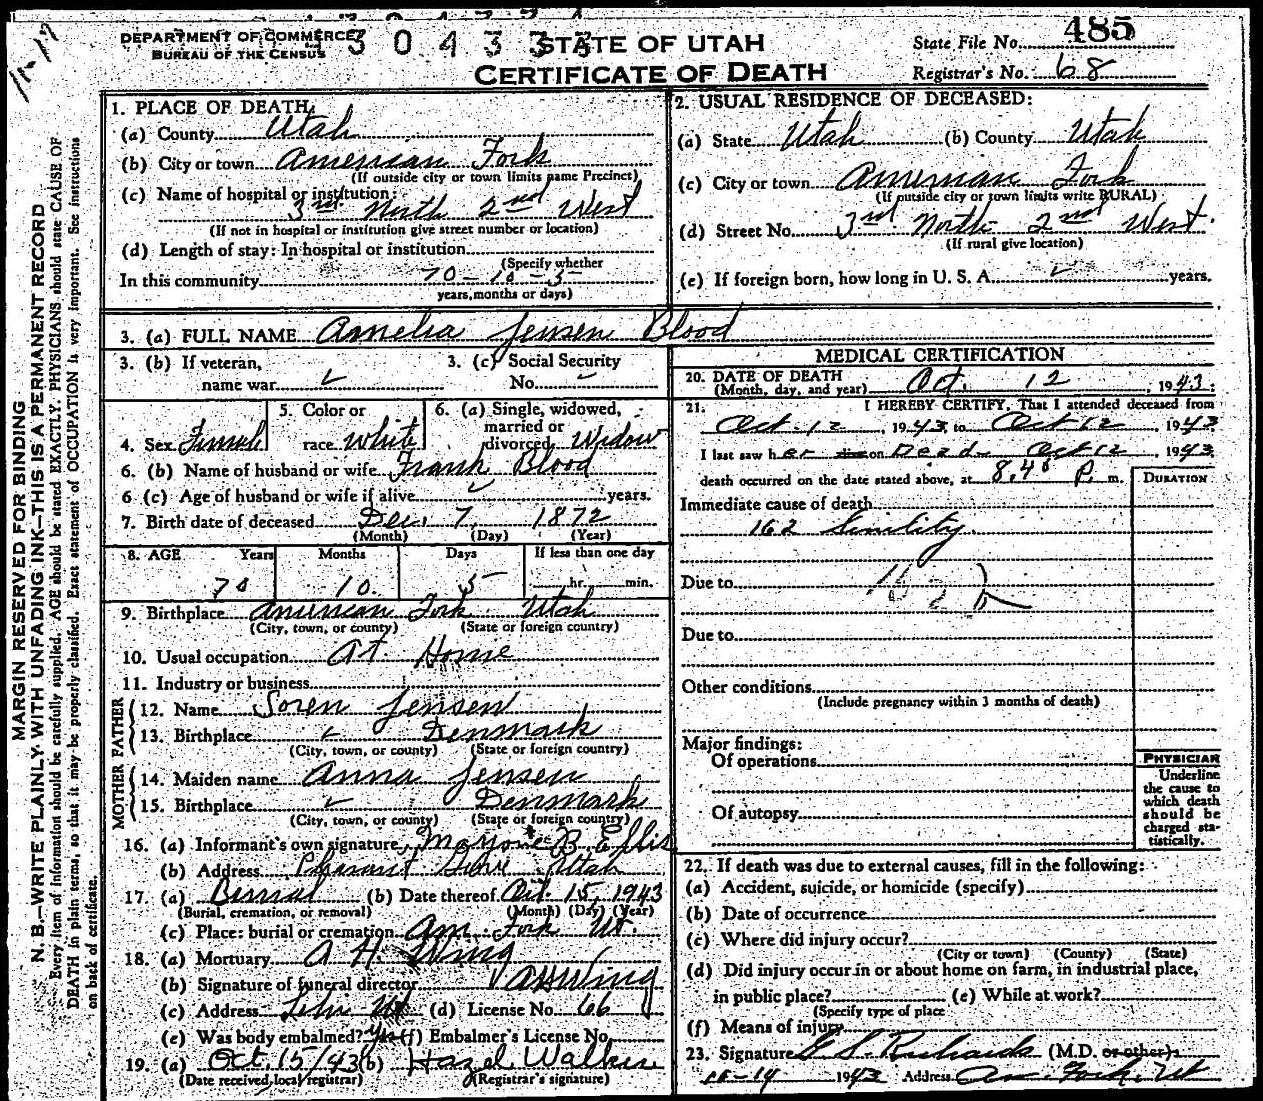 11-17
DEPARTMENT OF COMMERCE
BUREAU OF THE CENSUS
STATE OF UTAH
CERTIFICATE OF DEATH
State File No. 485
Registrar's No. 68
MARGIN RESERVED FOR BINDING
N. B.—WRITE PLAINLY WITH UNFADING INK—THIS IS A PERMANENT RECORD
Every item of information should be carefully supplied. AGE should be stated EXACTLY. PHYSICIANS should state CAUSE OF
DEATH in plain terms, so that it may be properly classified. Exact statement of OCCUPATION is very important. See instructions
on back of certificate.
1. PLACE OF DEATH
(a) County Utah
(b) City or town American Fork
(If outside city or town limits name Precinct)
(c) Name of hospital or institution:
3rd North 2nd West
(If not in hospital or institution give street number or location)
(d) Length of stay: In hospital or institution
(Specify whether
In this community 70-10-5
years, months or days)
2. USUAL RESIDENCE OF DECEASED:
(a) State Utah (b) County Utah
(c) City or town American Fork
(If outside city or town limits write RURAL)
(d) Street No. 3rd North 2nd West.
(If rural give location)
(e) If foreign born, how long in U. S. A. ✓ years.
3. (a) FULL NAME Amelia Jensen Blood
3. (b) If veteran,
name war ✓
3. (c) Social Security
No. ✓
4. Sex Female
5. Color or
race white
6. (a) Single, widowed,
married or
divorced Widow
6. (b) Name of husband or wife Frank Blood
6 (c) Age of husband or wife if alive ✓ years.
7. Birth date of deceased Dec. 7, 1872
(Month) (Day) (Year)
8. AGE Years Months Days If less than one day
70 10. 5 hr. min.
9. Birthplace American Fork Utah
(City, town, or county) (State or foreign country)
10. Usual occupation At Home
11. Industry or business
FATHER
12. Name Soren Jensen
13. Birthplace ✓ Denmark
(City, town, or county) (State or foreign country)
MOTHER
14. Maiden name Anna Jensen
15. Birthplace ✓ Denmark
(City, town, or county) (State or foreign country)
16. (a) Informant's own signature Marjorie B. Ellis
(b) Address Pleasant Grove Utah
17. (a) Burial (b) Date thereof Oct. 15, 1943
(Burial, cremation, or removal) (Month) (Day) (Year)
(c) Place: burial or cremation Am. Fork Ut.
18. (a) Mortuary A H. Wing
(b) Signature of funeral director A H Wing
(c) Address Lehi Ut (d) License No. 66
(e) Was body embalmed? yes (f) Embalmer's License No.
19. (a) Oct. 15/43 (b) Hazel Walker
(Date received local registrar) (Registrar's signature)
MEDICAL CERTIFICATION
20. DATE OF DEATH
(Month, day, and year) Oct. 12, 1943.
21. I HEREBY CERTIFY, That I attended deceased from
Oct-12, 1943, to Oct 12 1943
I last saw her on Dead Oct 12, 1943
death occurred on the date stated above, at 8:40 P. m.
DURATION
Immediate cause of death
162 Senility.
Due to 162b
Due to
Other conditions
(Include pregnancy within 3 months of death)
Major findings:
Of operations
Of autopsy
PHYSICIAN
Underline
the cause to
which death
should be
charged sta-
tistically.
22. If death was due to external causes, fill in the following:
(a) Accident, suicide, or homicide (specify)
(b) Date of occurrence
(c) Where did injury occur?
(City or town) (County) (State)
(d) Did injury occur in or about home on farm, in industrial place,
in public place? (e) While at work?
(Specify type of place
(f) Means of injury
23. Signature G S. Richards (M.D. or other)
10-14 1943 Address Am. Fork, Ut